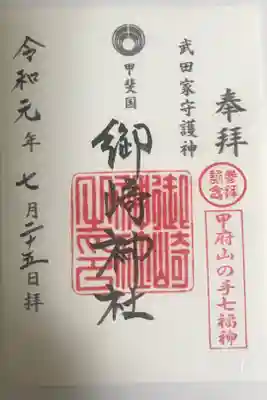 奉拝
参拝記念
甲府山の手七福神
武田家守護神
甲斐国
御崎神社
令和元年七月二十五日拝